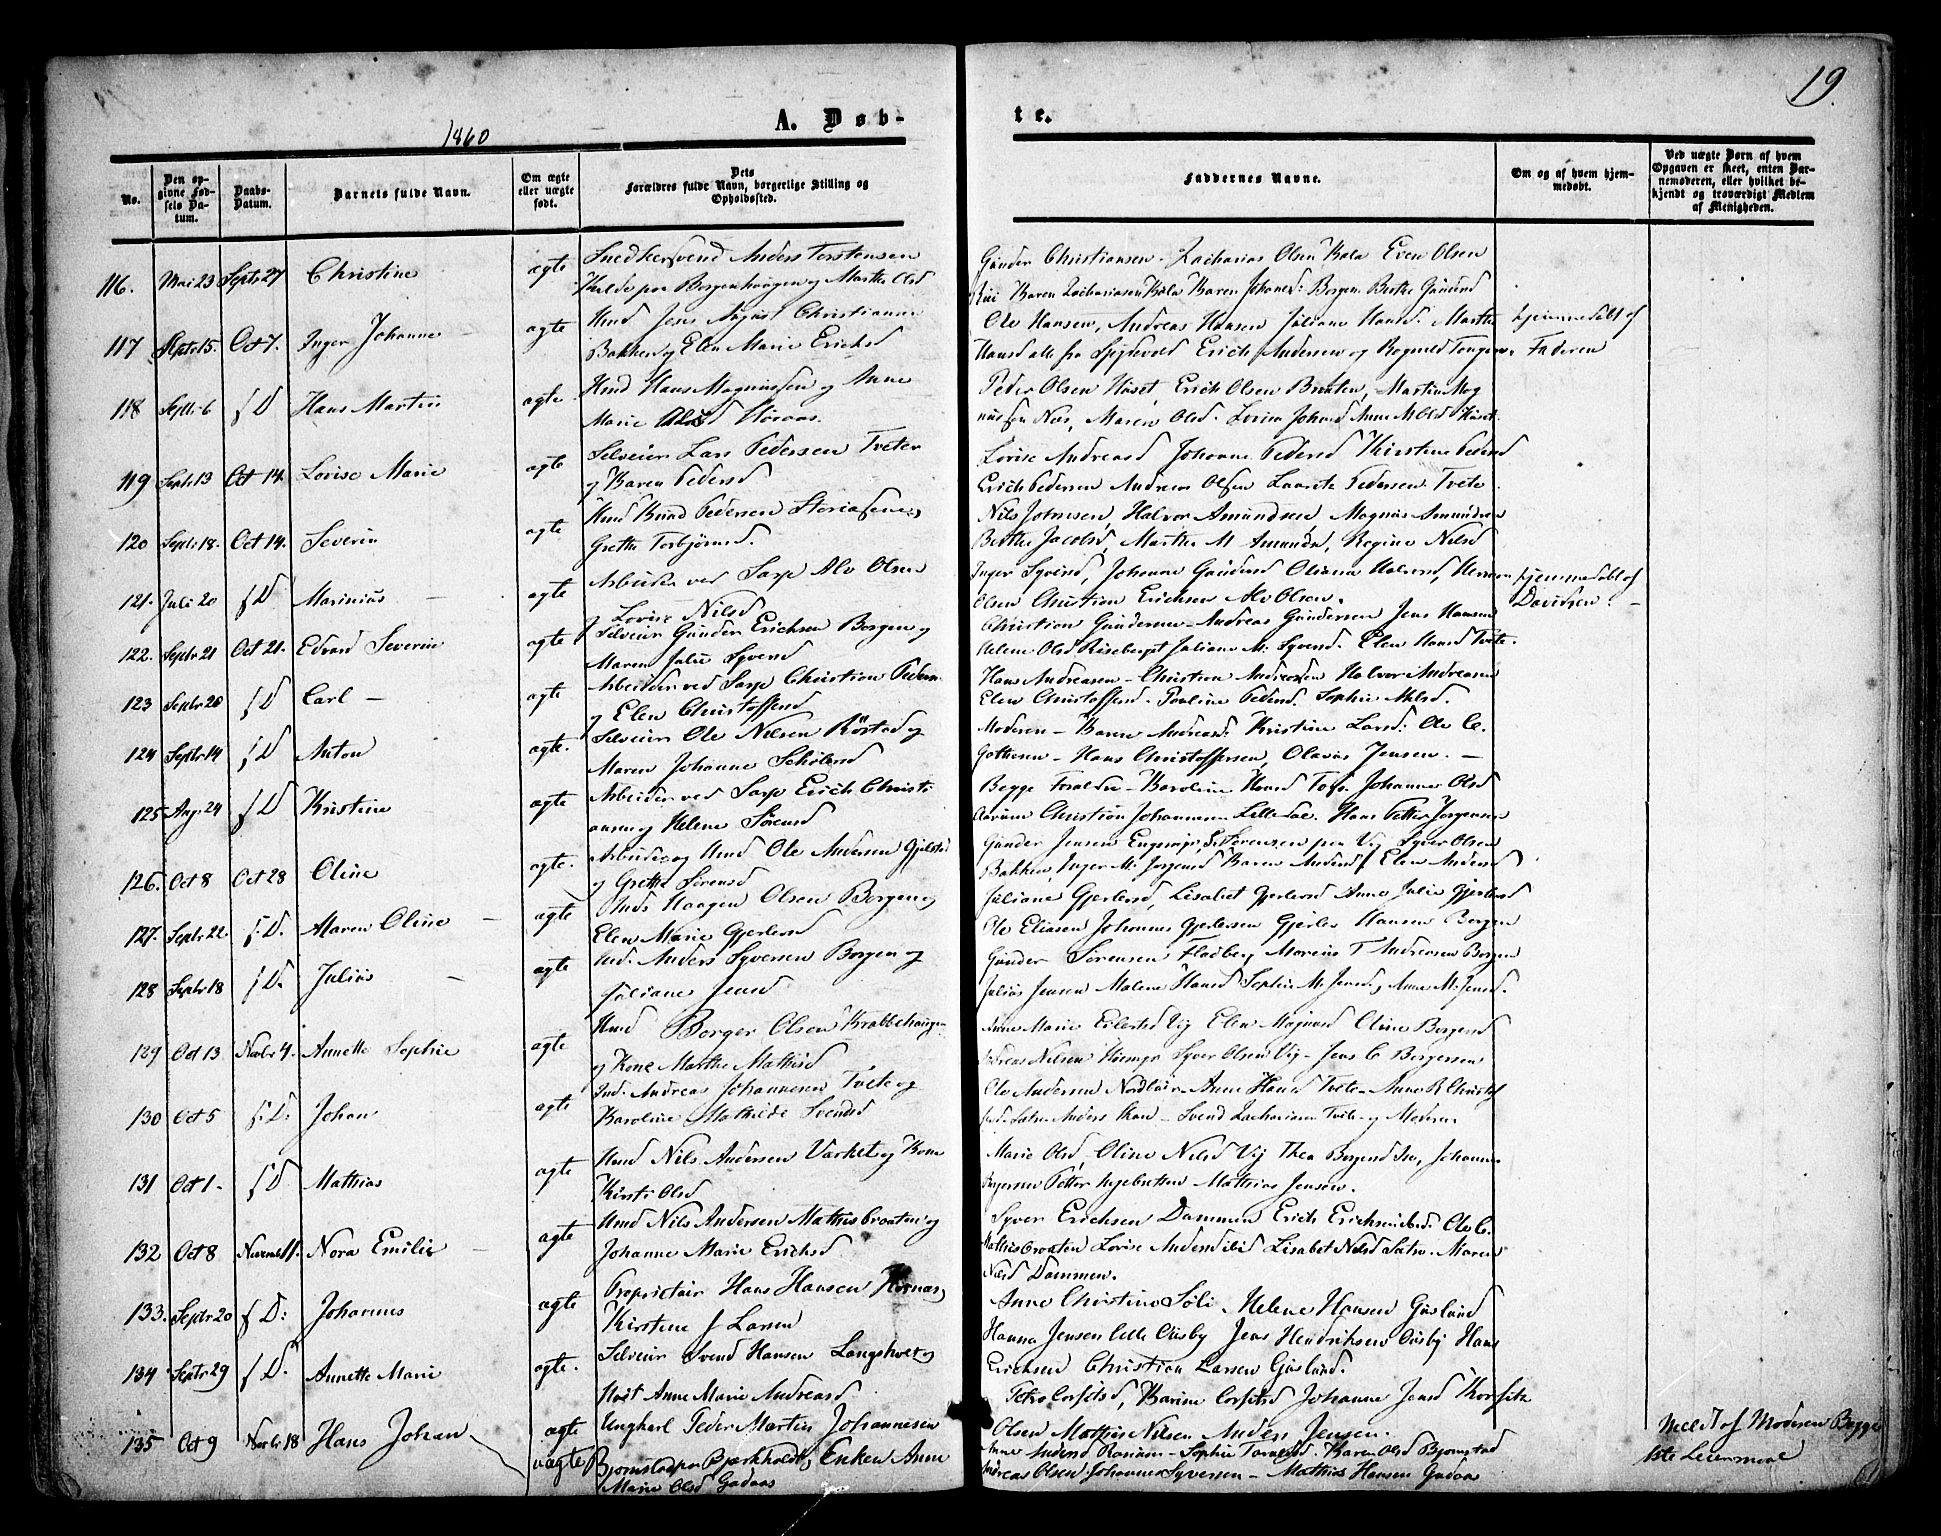 19.
1860
A. Døb-
te.
No.
Den opgivne Fødsels Datum.
Daabs-Datum.
Barnets fulde Navn.
Om ægte eller uægte født.
Dets Forældres fulde Navn, borgerlige Stilling og Opholdssted.
Faddernes Navne.
Om og af hvem hjemmedøbt.
Ved uægte Børn af hvem Opgaven er skeet, enten Barnemoderen, eller hvilket bekjendt og troværdigt Medlem af Menigheden.
116. Mai 23 Septr 27 Christine ægte Snedkersvend Anders Torstensen
og Marthe Olsd
Gunder Christiansen - Zacharias Olsen Kala Even Olsen
Karen Zachariasen Kala Karen Johansd: Borgen Berthe Gundersd
117 Septr 15. Oct 7. Inger Johanne ægte Hmd Jens August Christiansen
Bakken og Elen Marie Ericksd
Ole Hansen, Andreas Hansen Juliane Hansd. Marthe
Hansd alle fra Spydevold Erich Andersen og Ragnild Tongen.
hjemmedøbt af
Faderen
118 Septr 6 f D Hans Martin ægte. Hmd Hans Magnussen og Anne
Marie Olsd
Peder Olsen Haset, Erich Olsen Braten, Martin Mag
nussen Næs, Maren Olsd. Lovise Johnsd Anne M Olsd Haset.
119 Septr 13 Oct 14. Lovise Marie ægte Selveier Lars Pedersen Tveter
og Karen Pedersd
Lovise Andreasd Johanne Pedersd Kirstine Pedersd
Erich Pedersen Andreas Olsen Laurits Pedersen Tvete.
120 Septr 18. Oct 14. Severin ægte Hmd Knud Pedersen
Grethe Torbjørnsd.
Nils Johnsen, Halvor Amundsen, Magnus Amundsen
Berthe Jacobsd, Marthe M Amundsd, Regine Nilsd
121. Juli 20 f D Marinius - ægte Arbeider ved Sarp Alv Olsen
og Lovise Nilsd
Inger Syversd, Johanne Gundersd Oliana Halvorsd, Herman
Olsen Christian Erichsen Alv Olsen.
hjemmedøbt af
Davidsen. -
122. Septr 21 Oct 21. Edvard Severin ægte Selveier Gunder Erichsen Borgen og
Maren Julie Syversd
Christian Gundersen - Andreas Gundersen Jens Hansen
Helene Olsd Riseberget Juliane M: Syversd. Elen Hansd Tvete.
123 Septr 20 f D Carl - ægte Arbeider ved Sarp Christian Pedersen
og Elen Christoffersd
Hans Andreasen - Christian Andreasen Halvor Andreasen
Elen Christoffersd. Pauline Pedersd. Sophie Nilsd.
124 Septr 14 f D Anton ægte. Selveier Ole Nilsen Røstad og
Maren Johanne
Moderen - Karen Andreasd: Kristine Larsd: Ole C.
Gathesen - Hans Christoffersen, Olavus Jensen. -
125 Aug 24 f D Kristine ægte Arbeider ved Sarp Erich Christi
ansen og Helene Sørensd
Begge Forældre - Karoline Hansd Johannes Olsd
Aarum Christian Johannesen Lilleloe. Hans Petter Jørgensen
126. Oct 8 Oct 28 Oline ægte. Arbeider og Hmd Ole Andersen Gjelsted
og Grethe Sørensd
Gunder Jensen Sørensen paa Vig Syver Olsen
Bakken, Inger M. Jørgensd Karen Andersd Elen Andersd
127. Septr 22 f. D. Maren Oline - ægte Hmd Haagen Olsen Borgen og
Elen Marie Gjerlersd
Juliane Gjerlersd, Lisabet Gjerlersd Anne Julie Gjerlersd
Ole Eliasen Johannes Gjerlersen Gjerler Hansen Borgen
128 Septr 18 f D. Julius - ægte Hmd: Anders Syversen Borgen og
Juliane Jensd
Gunder Sørensen Fladberg Marius T Andreasen Borgen
Julius Jensen Malene Hansd Sophie M. Jensd, Anne M. Jensd.
129 Oct 13 Novbr 4. Annette Sophie ægte Hmd Borger Olsen Krabbehaugen
og Kone Marthe Mathisd
Anne Marie Vig Elen Magnusd Oline Borgersd
Andreas Nilsen Syver Olsen Vig - Jens C Borgersen
130 Oct 5 f: D: Johan ægte Ind. Andreas Johannesen Tvete og
Karoline Mathilde Svendsd
Ole Andersen Anne Hansd Tvete - Anne R Christof
fersd Anders - Svend Zachariasen Tvete og Moderen
131 Oct 1 - f D Mathias ægte Hmd Nils Andersen Varket og Kone
Kirsti Olsd
Marie Olsd - Oline Nilsd Vig Thea Borgersd Johannes
Borgersen Petter Mathias Jensen.
132 Oct 8 Novembr 11. Nora Emilie - ægte Hmd Nils Andersen Mathisbraaten og
Johanne Marie Erichsd
Syver Erichsen Dammen Erich Erichsen Ole C.
Mathisbraaten Lovise Andersd Lisabet Nilsd Maren
Nilsd Dammen.
133. Septr 20 f D: Johannes ægte Proprietair Hans Hansen Hornæs
Kirstine J Larsen
Anne Christine Soli - Helene Hansen Gusland
Hanna Jensen Lille Ousby Jens Hendriksen Ousby Hans
Erichsen Christian Larsen Gusland.
134 Septr 29 f D. Annette Marie ægte. Selveier Svend Hansen Langsholt og
Anne Marie Andreasd
Petro Corfitsd, Karine Corfitsd Johanne Jensd Korfitz
Olsen Mathis Nilsen Anders Jensen.
135 Oct 9 Novbr 18 Hans Johan ægte
uægte
Ungkarl Peder Martin Johannesen
Bjørnstad paa Bjerkholdt, Enken Anne
Marie Olsd Gadaas
Anne Andersd Sophie Karen Olsd Bjørnstad
Andreas Olsen Johannes Syversen - Mathis Hansen Gadaas
Meldt af Moderen Begge
1ste Leiermaal